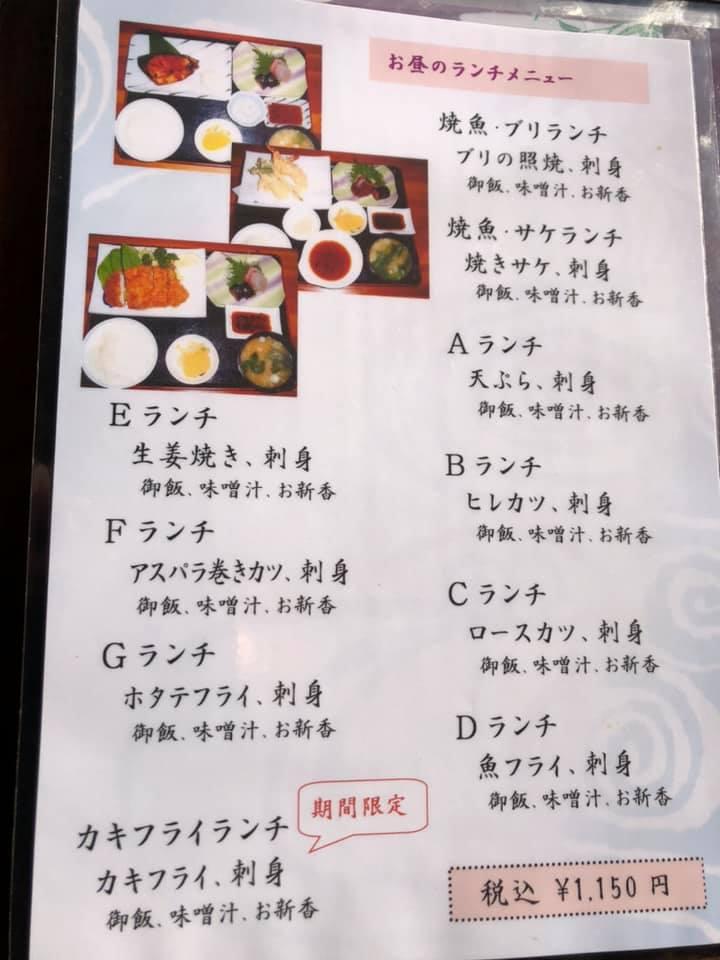 お昼のランチメニュー
焼魚・ブリランチ
ブリの照焼、刺身
御飯、味噌汁、お新香
焼魚・サケランチ
焼きサケ、刺身
御飯、味噌汁、お新香
Aランチ
天ぷら、刺身
御飯、味噌汁、お新香
Bランチ
ヒレカツ、刺身
御飯、味噌汁、お新香
Cランチ
ロースカツ、刺身
御飯、味噌汁、お新香
Dランチ
魚フライ、刺身
御飯、味噌汁、お新香
Eランチ
生姜焼き、刺身
御飯、味噌汁、お新香
Fランチ
アスパラ巻きカツ、刺身
御飯、味噌汁、お新香
Gランチ
ホタテフライ、刺身
御飯、味噌汁、お新香
期間限定
カキフライランチ
カキフライ、刺身
御飯、味噌汁、お新香
税込 ¥1,150 円